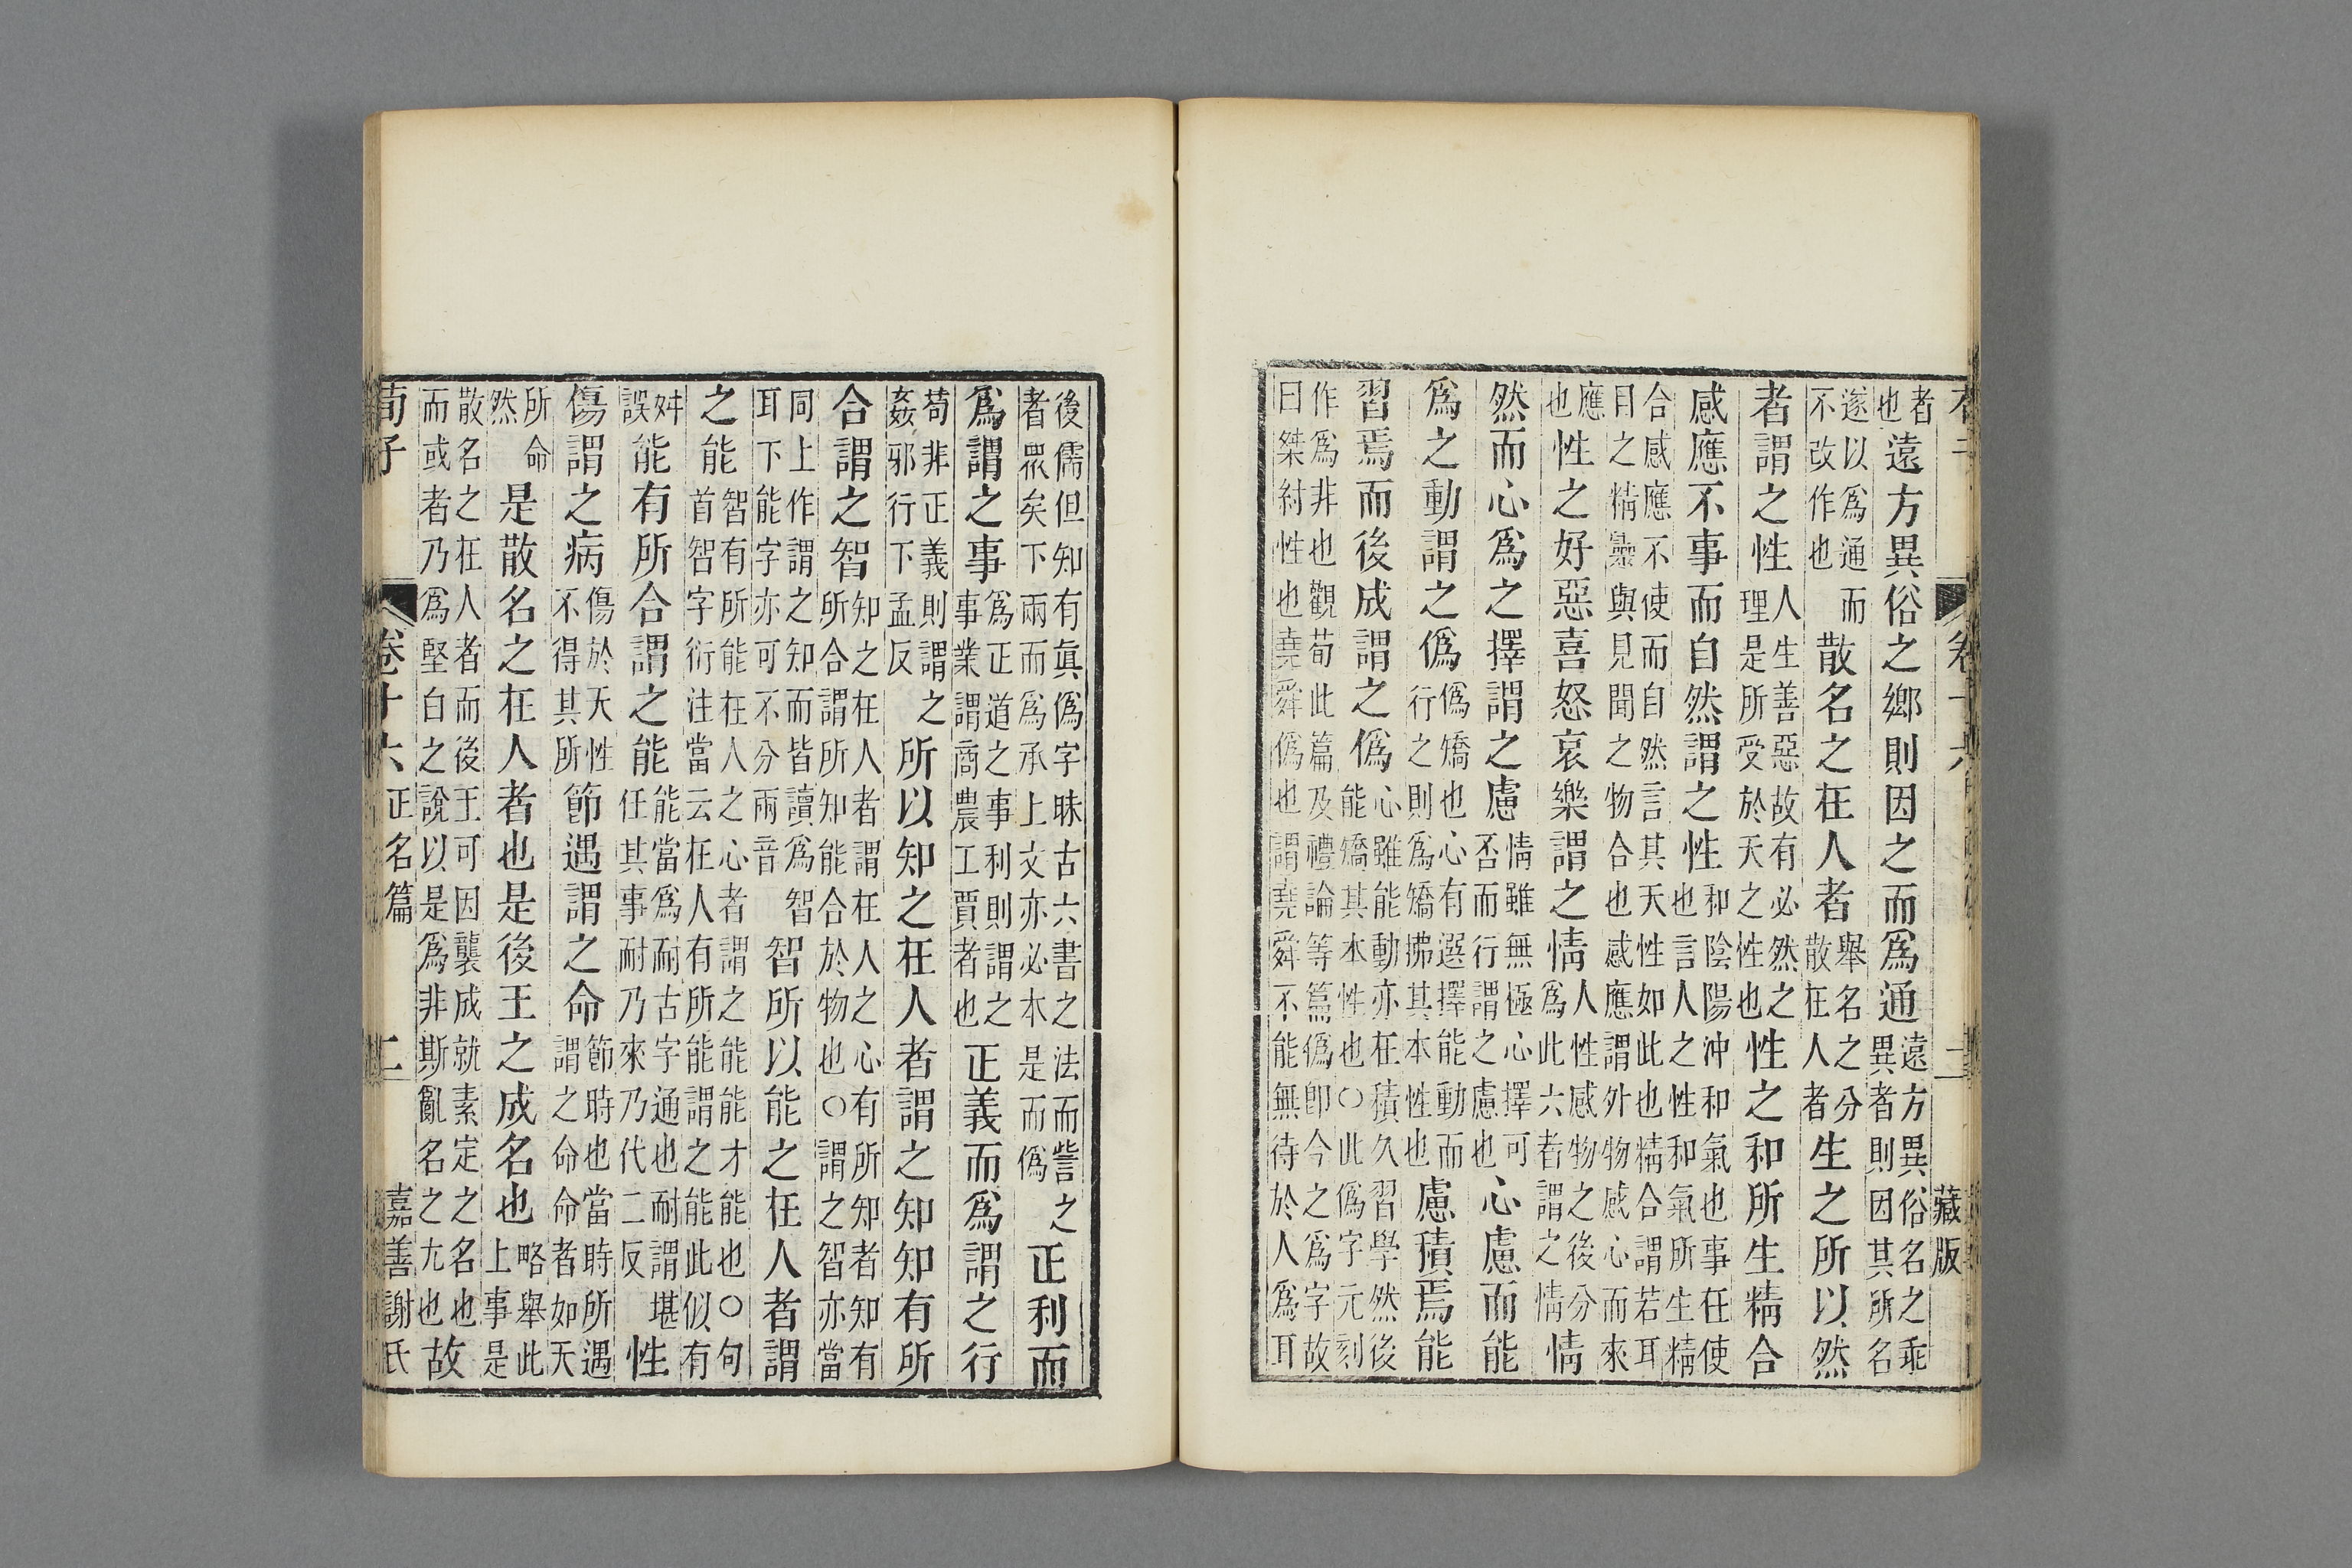 藏版
者也遠方異俗之鄉則因之而爲通遠方異俗名之乖異者則因其所名
遂以爲通而不改作也散名之在人者舉名之分散在人者生之所以然
者謂之性人生善惡故有必然之理是所受於天之性也性之和所生精合
感應不事而自然謂之性和陰陽沖和氣也事在使也言人之性和氣所生精
合感應不使而自然言其天性如此也精合謂若耳目之精靈與見聞之物合也感應謂外物感心而來
應也性之好惡喜怒哀樂謂之情人性感物之後分爲此六者謂之情情
然而心爲之擇謂之慮情雖無極心擇可否而行謂之慮也心慮而能
爲之動謂之僞僞矯也心有選擇能動而行之則爲矯拂其本性也慮積焉能
習焉而後成謂之僞心雖能動亦在積久習學然後能矯其本性也○此僞字元刻
作爲非也觀荀此篇及禮論等篇僞即今之爲字故曰桀紂性也堯舜僞也謂堯舜不能無待於人爲耳
後儒但知有眞僞字昧古六書之法而訾之者眾矣下兩而爲承上文亦必本是而僞正利而
爲謂之事爲正道之事利則謂之事業謂商農工賈者也正義而爲謂之行
苟非正義則謂之姦邪行下孟反所以知之在人者謂之知知有所
合謂之智知之在人者謂在人之心有所知者知有所合謂所知能合於物也○謂之智亦當
同上作謂之知而皆讀爲智耳下能字亦可不分兩音智所以能之在人者謂
之能智有所能在人之心者謂之能能才能也○句首智字衍注當云在人有所能謂之能此似有
舛誤能有所合謂之能能當爲耐古字通也耐謂堪任其事耐乃來乃代二反性
傷謂之病傷於天性不得其所節遇謂之命節時也當時所遇謂之命命者如天
所命然是散名之在人者也是後王之成名也略舉此上事是
散名之在人者而後王可因襲成就素定之名也而或者乃爲堅白之說以是爲非斯亂名之尤也故
荀子 卷十六 正名篇 二 嘉善謝氏